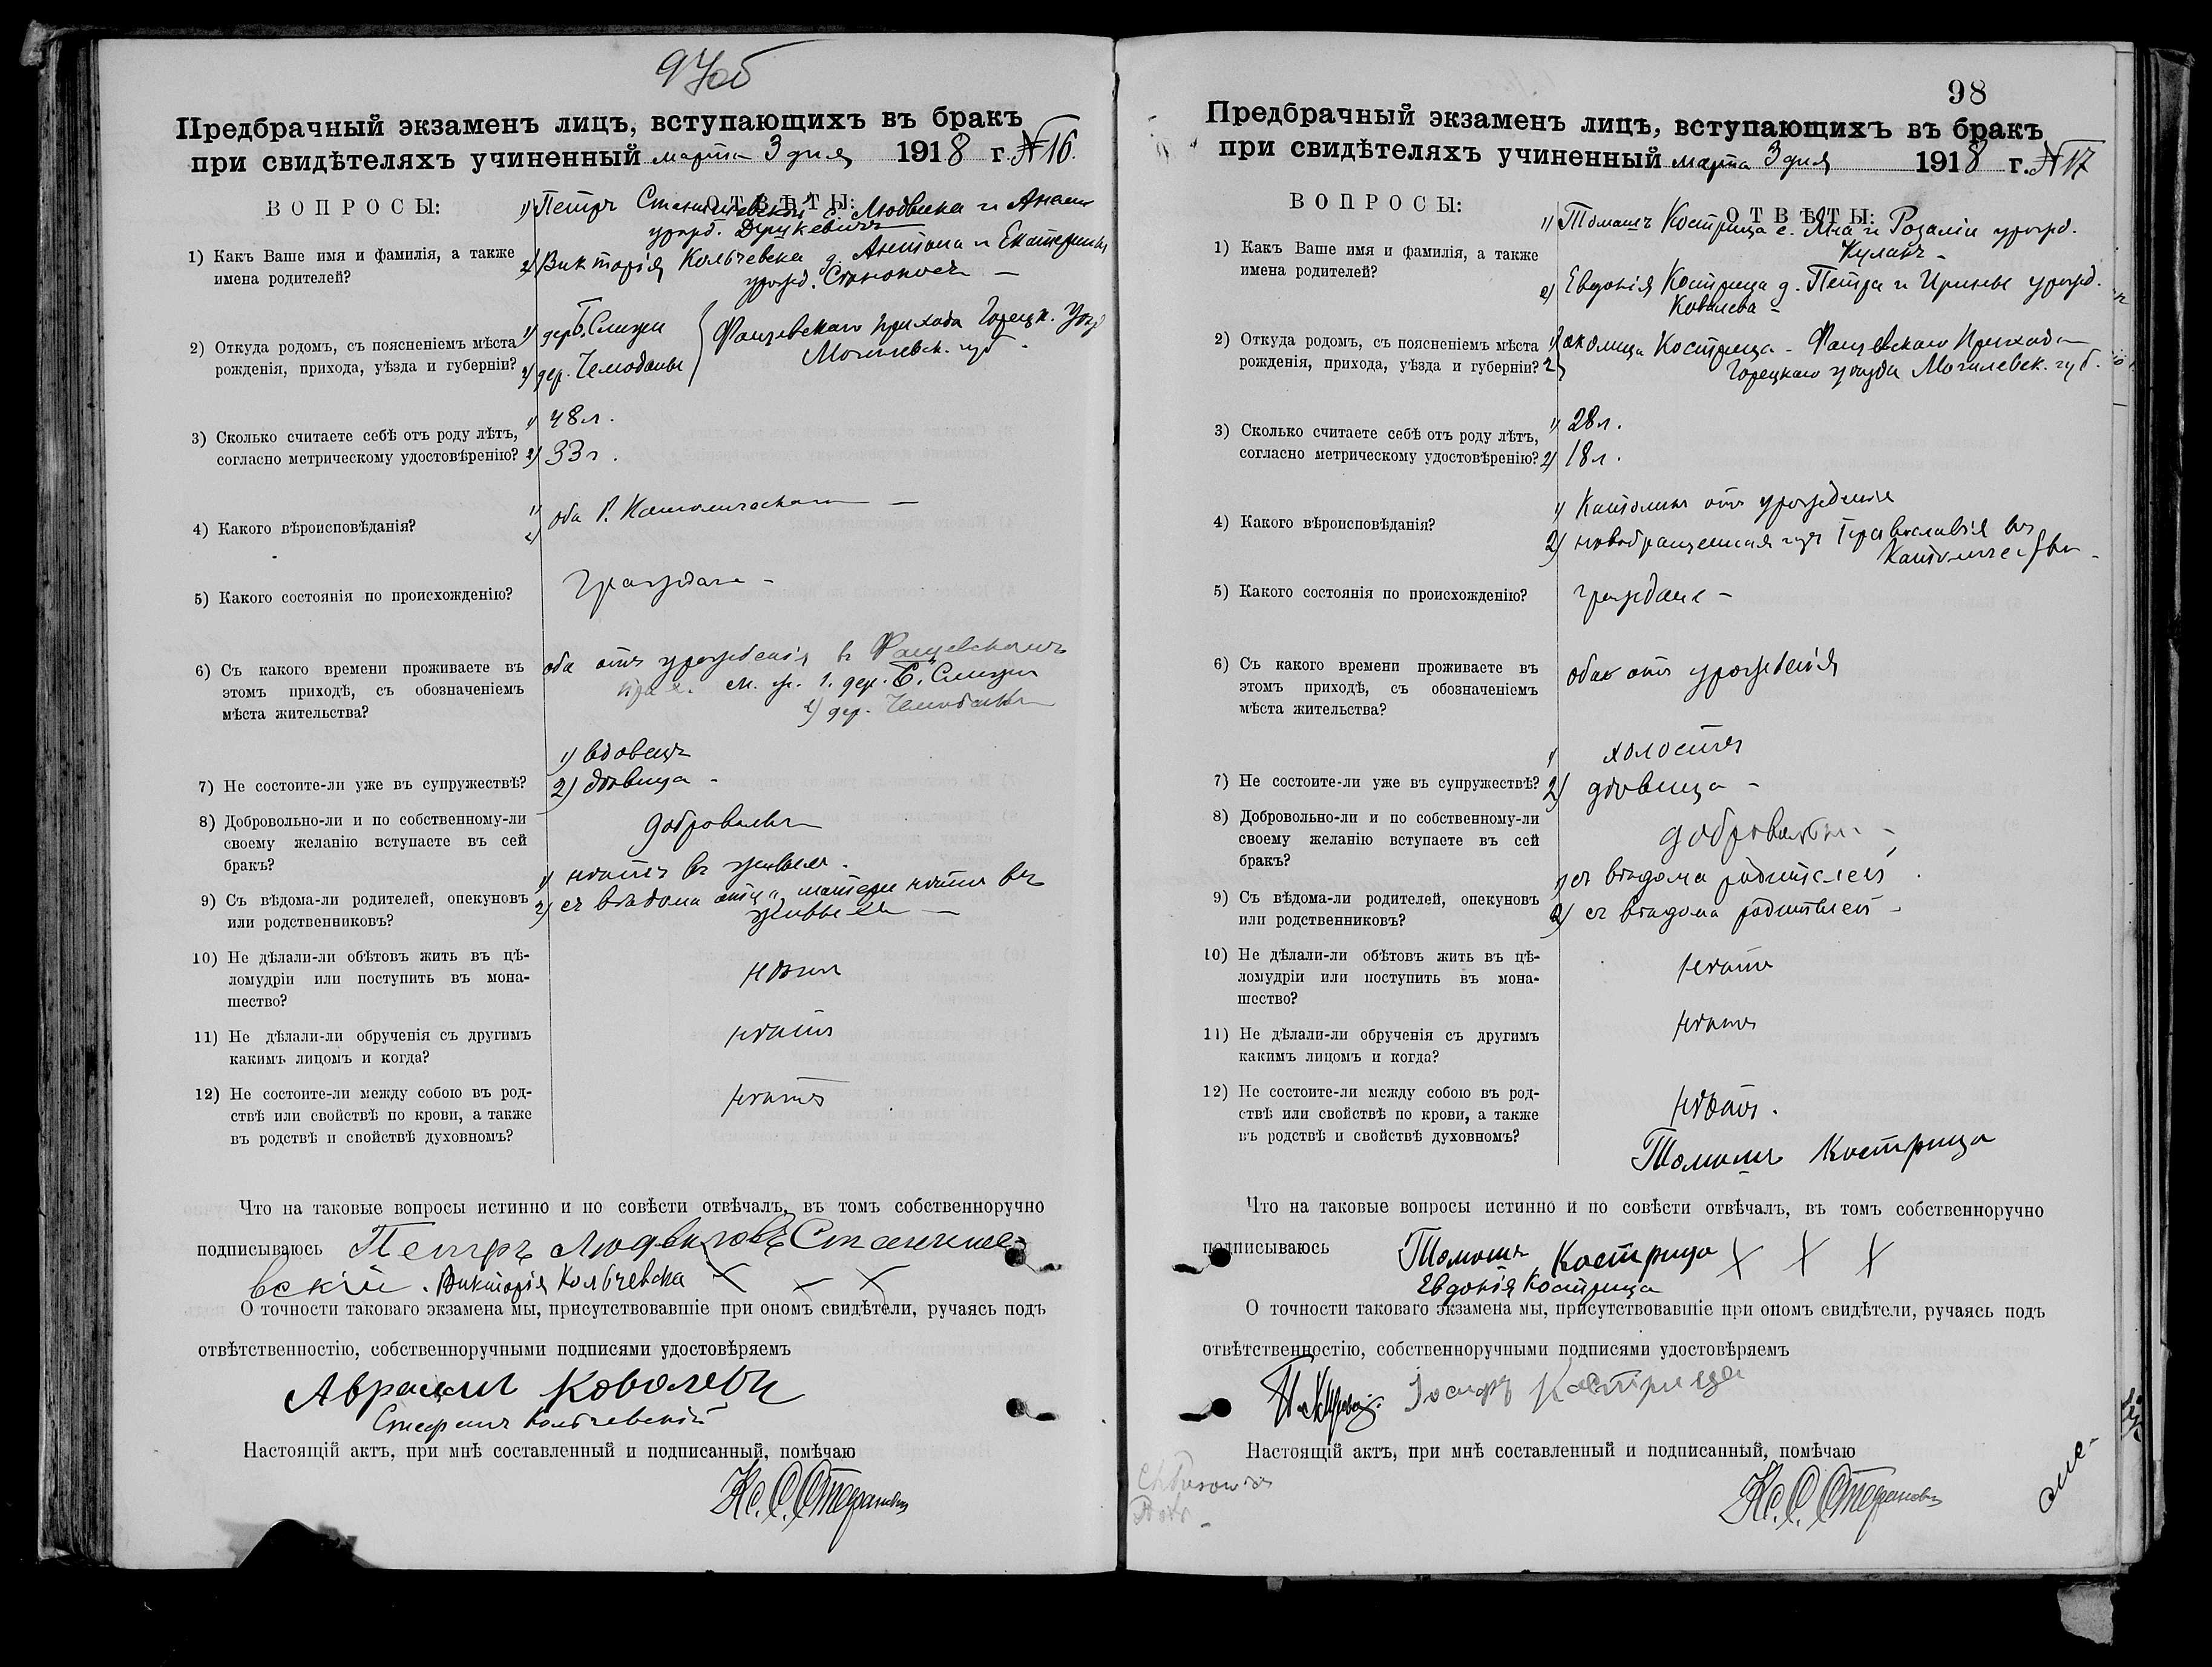 97об
Предбрачный экзаменъ лицъ, вступающихъ въ бракъ
при свидѣтеляхъ учиненный марта 3 дня 1918 г. № 16.
ВОПРОСЫ:
ОТВѢТЫ:
1) Петръ Станишевскій с. Людвика и Анны
урожд.
2) Викторія Кольчевска д. Антона и Екатерины
урожд.
1) Какъ Ваше имя и фамилія, а также
имена родителей?
1) дер. Б. Слижи
2) дер. Чемоданы
Фащевскаго прихода Горецк. уѣзд
Могилевск. губ.
2) Откуда родомъ, съ поясненіемъ мѣста
рожденія, прихода, уѣзда и губерніи?
1) 48 л.
2) 33 г.
3) Сколько считаете себѣ отъ роду лѣтъ,
согласно метрическому удостовѣренію?
1)
2) оба Р. Католическаго
4) Какого вѣроисповѣданія?
граждане
5) Какого состоянія по происхожденію?
оба отъ урожденія въ Фащевскомъ
прих. м. ж. 1. дер. Б. Слижи
2) дер. Чемоданы
6) Съ какого времени проживаете въ
этомъ приходѣ, съ обозначеніемъ
мѣста жительства?
1) вдовецъ
2) вдовица
7) Не состоите-ли уже въ супружествѣ?
добровольно
8) Добровольно-ли и по собственному-ли
своему желанію вступаете въ сей
бракъ?
1) нѣтъ въ живыхъ.
2) съ вѣдома отца, матери нѣтъ въ
живыхъ
9) Съ вѣдома-ли родителей, опекуновъ
или родственниковъ?
10) Не дѣлали-ли обѣтовъ жить въ цѣ-
ломудріи или поступить въ мона-
шество?
нѣтъ
11) Не дѣлали-ли обрученія съ другимъ
какимъ лицомъ и когда?
нѣтъ
12) Не состоите-ли между собою въ род-
ствѣ или свойствѣ по крови, а также
въ родствѣ и свойствѣ духовномъ?
нѣтъ
Что на таковые вопросы истинно и по совѣсти отвѣчалъ, въ томъ собственноручно
подписываюсь Петръ Людвиговъ Станише-
вскій. Викторія Кольчевска X X X
О точности таковаго экзамена мы, присутствовавшіе при ономъ свидѣтели, ручаясь подъ
отвѣтственностію, собственноручными подписями удостовѣряемъ
Ковалевъ
Стефанъ Кольчевскій
Настоящій актъ, при мнѣ составленный и подписанный, помѣчаю
Кс. С.
98
Предбрачный экзаменъ лицъ, вступающихъ въ бракъ
при свидѣтеляхъ учиненный марта 3 дня 1918 г. № 17
ВОПРОСЫ:
ОТВѢТЫ:
1) Томашъ Кострица с. Яна и Розаліи урожд.
Кулакъ
2) Евдокія Кострица д. Петра и Ирины урожд.
Ковалева
1) Какъ Ваше имя и фамилія, а также
имена родителей?
1)
2) околица Кострица - Фащевскаго Прихода
Горецкаго уѣзда Могилевск. губ.
2) Откуда родомъ, съ поясненіемъ мѣста
рожденія, прихода, уѣзда и губерніи?
1) 28 л.
2) 18 л.
3) Сколько считаете себѣ отъ роду лѣтъ,
согласно метрическому удостовѣренію?
1) Католикъ отъ урожденія
2) новобращенная изъ Православія въ
Католичество
4) Какого вѣроисповѣданія?
граждане
5) Какого состоянія по происхожденію?
оба отъ урожденія
6) Съ какого времени проживаете въ
этомъ приходѣ, съ обозначеніемъ
мѣста жительства?
1) холостъ
2) дѣвица
7) Не состоите-ли уже въ супружествѣ?
добровольно
8) Добровольно-ли и по собственному-ли
своему желанію вступаете въ сей
бракъ?
1) съ вѣдома родителей
2) съ вѣдома родителей
9) Съ вѣдома-ли родителей, опекуновъ
или родственниковъ?
10) Не дѣлали-ли обѣтовъ жить въ цѣ-
ломудріи или поступить въ мона-
шество?
нѣтъ
11) Не дѣлали-ли обрученія съ другимъ
какимъ лицомъ и когда?
нѣтъ
12) Не состоите-ли между собою въ род-
ствѣ или свойствѣ по крови, а также
въ родствѣ и свойствѣ духовномъ?
нѣтъ.
Томашъ Кострица
Что на таковые вопросы истинно и по совѣсти отвѣчалъ, въ томъ собственноручно
подписываюсь Томашъ Кострица X X X
Евдокія Кострица
О точности таковаго экзамена мы, присутствовавшіе при ономъ свидѣтели, ручаясь подъ
отвѣтственностію, собственноручными подписями удостовѣряемъ
Іосифъ Кострица
Настоящій актъ, при мнѣ составленный и подписанный, помѣчаю
Кс. С.